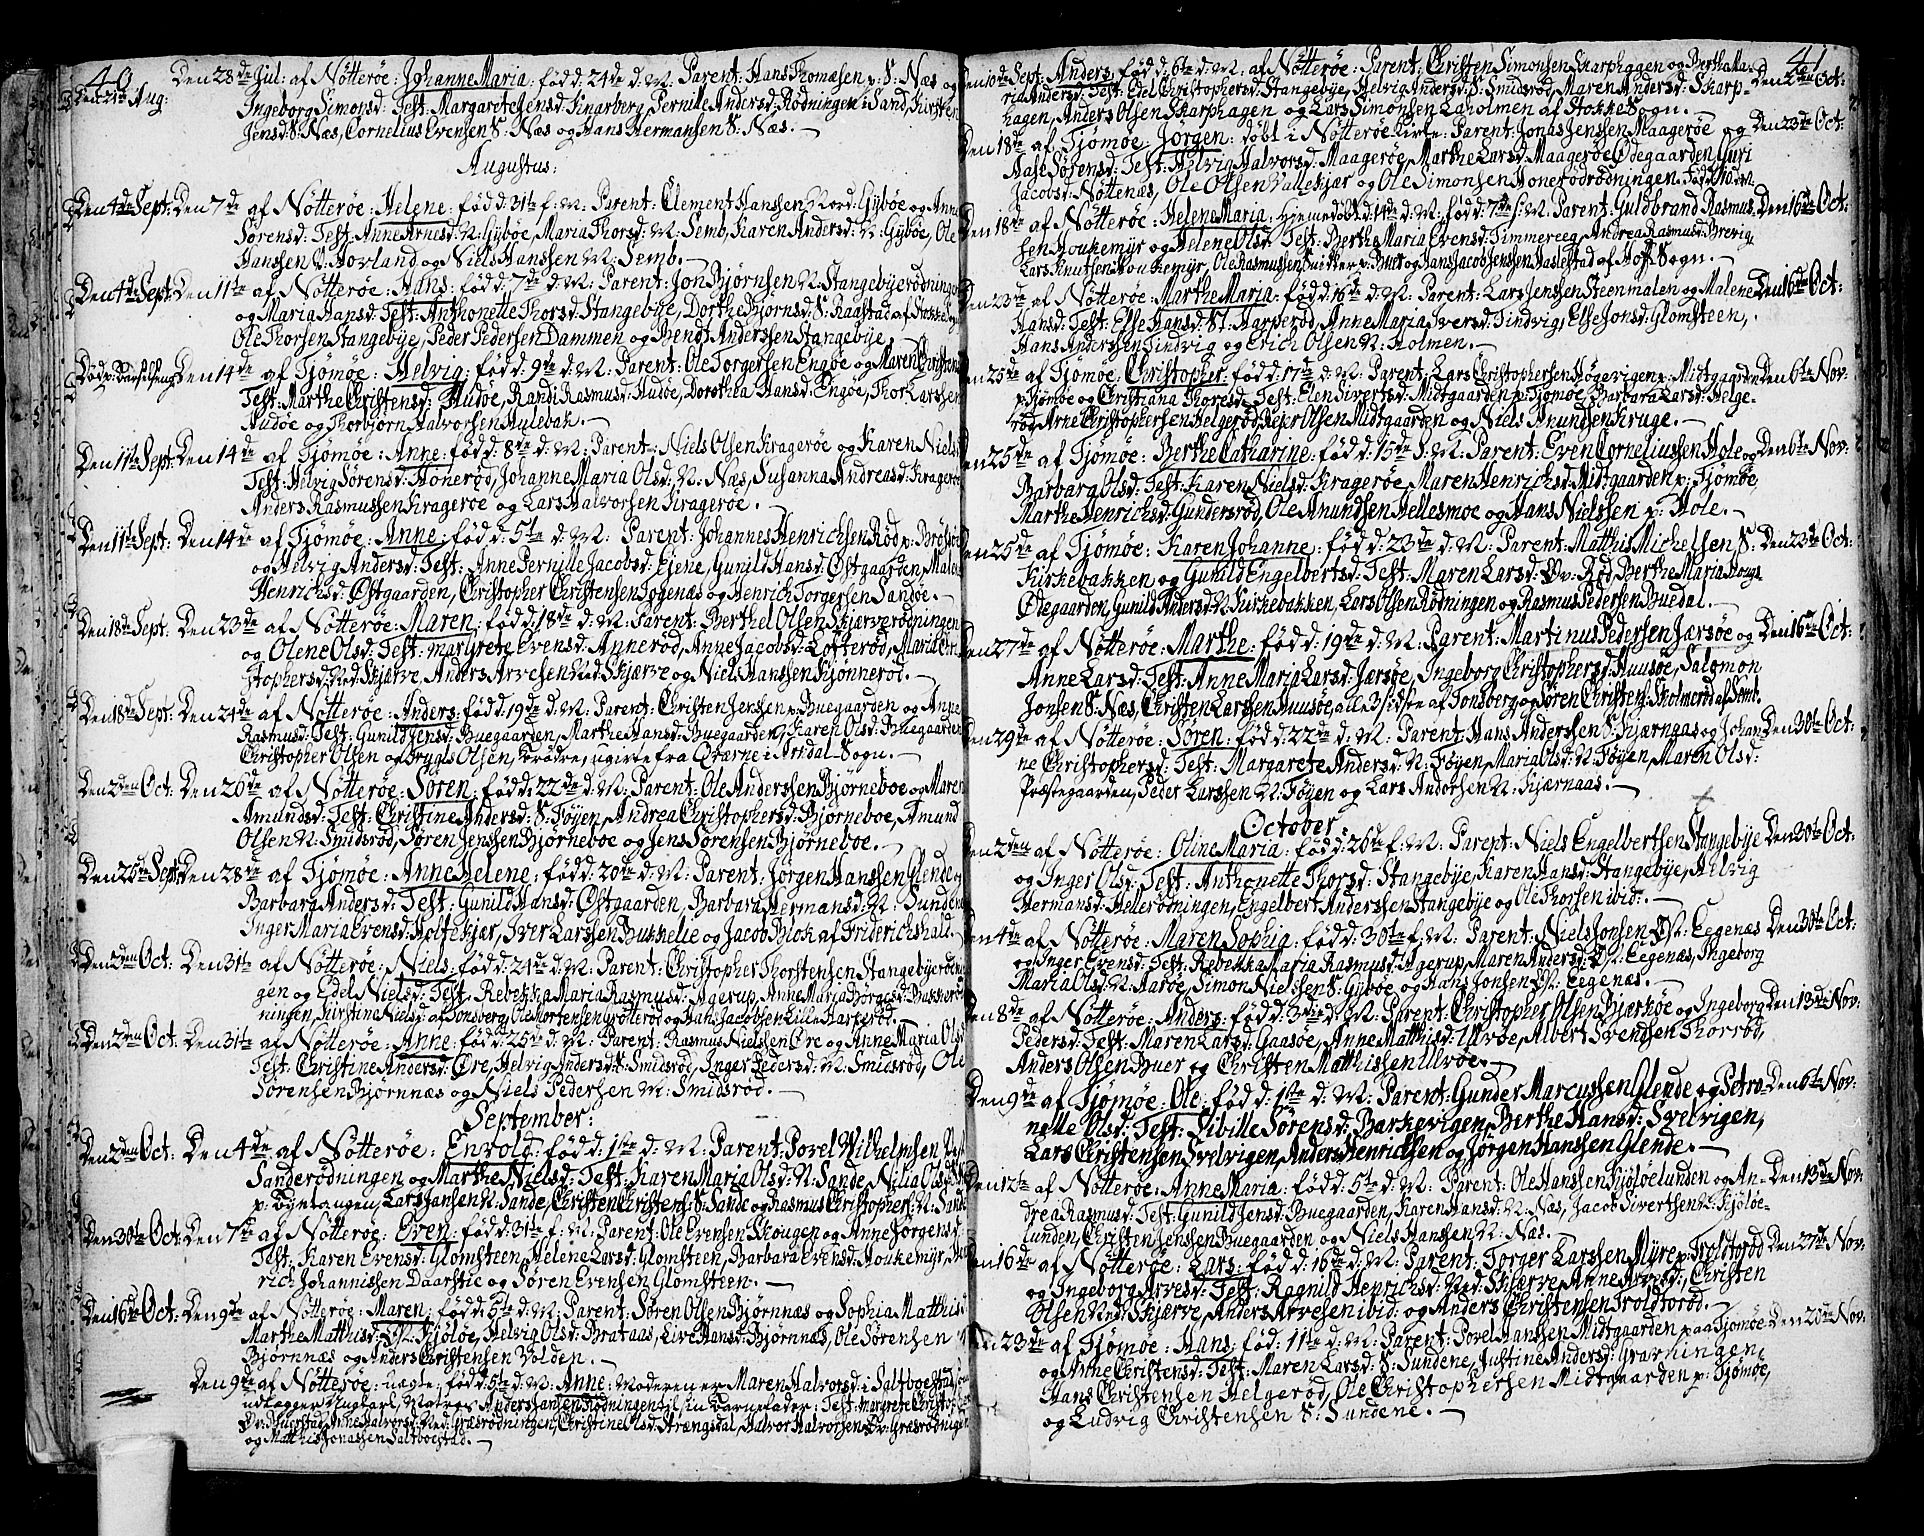 40
Den 28de Jul: af Nøtterøe: Johanne Maria: född: 24de d: M: Parent: Hans Thomæsen p: S: Næs og
Den 21de Aug:
Ingeborg Simonsd: Test: Margarete Jensd: Kinarberg, Pernille Andersd: Rødningen i Sand, Kirsten
Jensd: S: Næs, Cornelius Evensen S: Næs og Hans Hermansen S: Næs. —
Augustus:
Den 4de Sept: Den 7de af Nøtterøe: Helene: född: 31te f: M: Parent: Clement Hanssen Nord: Gyböe og Anne
Sørensd: Test: Anne Arnesd: N: Gyböe, Maria Thorsd: N: Semb, Karen Andersd: N: Gyböe, Ole
Hanssen V: Hovland og Niels Hanssen N: Semb. —
Den 4de Sept: Den 11te af Nøtterøe: Hans: född: 7de d: M: Parent: Jon Bjørnsen N: Stangebyerødningen
og Maria Hansd: Test: Anthonette Thorsd: Stangebÿe, Dorthe Bjørnsd: S: Raastad af Stokke
Ole Thorsen Stangebÿe, Peder Pedersen Dammen og Bendt Anderssen Stangebÿe.
Død p: Barselseng Den 14de af Tjømøe: Helvig: född: 9de d: M: Parent: Ole Torgersen Engøe og Maren Christens
Test: Marthe Christensd: Hudøe, Randi Rasmusd: Hudøe, Dorothea Hansd: Engøe, Thor Larssen
Hudøe og Thorbjørn Halvorsen Hulebak. —
Den 11te Sept: Den 14de af Tjømøe: Anne: född: 8de d: M: Parent: Niels Olsen Kragerøe og Karen Nielsd:
Test: Helvig Sørensd: Honerød, Johanne Maria Olsd: N: Næs, Susanna Andreasd: Kragerøe
Anders Rasmussen Kragerøe og Lars Halvorsen Kragerøe. —
Den 11te Sept: Den 14de af Tjømøe: Anne: född: 5te d: M: Parent: Johannes Henrichsen Rød p: Brøtsöe
og Helvig Andersd: Test: Anne Pernille Jacobsd: Ejene, Gunild Hansd: Østgaarden, Malene
Henrichsd: Østgaarden, Christopher Christensen Togenæs og Henrich Torgersen Sandøe. —
Den 18de Sept. Den 23de af Nøtterøe: Maren: född: 18de d: M: Parent: Berthel Olsen Skjærverødningen
og Olene Olsd: Test: Margrete Evensd: Annerød, Anne Jacobsd: Lofterød, Maria Chri-
stophersd: Ned: Skjærve, Anders Arvesen Ned: Skjærve og Niels Hanssen Kjønnerød. —
Den 18de Sept. Den 24de af Nøtterøe: Anders: född: 19de d: M: Parent: Christen Jenssen p: Buegaarden og Anne
Rasmusd: Test: Gunild Jensd: Buegaarden, Marthe Hansd: Buegaarden, Karen Olsd: Buegaarden
Christopher Olsen og Trygls Olsen, brødre, ugivte fra Qvarne i Arrdal Sogn. —
Den 2den Oct: Den 26de af Nøtterøe: Søren: född: 22de d: M: Parent: Ole Anderssen Bjørneboe og Maren
Amundsd: Test: Christine Andersd: S: Føyen, Andrea Christophersd: Bjørneboe, Amund
Olsen N: Smidsrød, Søren Jenssen Bjørneboe og Jens Sørensen Bjørneboe. —
Den 25de Sept: Den 28de af Tjømøe: Anne Helene: född: 20de d: M: Parent: Jørgen Hanssen Glende og
Barbara Andersd: Test: Gunild Hansd: Østgaarden, Barbara Hermansd: N: Sundene
Inger Maria Evensd: Holtekjær, Iver Larssen Bukkelie og Jacob Blok af Friderichshald. —
Den 2den Oct: Den 31te af Nøtterøe: Niels: född: 24de d: M: Parent: Christopher Thorstensen Stangebyerødnin-
gen og Edel Nielsd: Test: Rebekka Maria Rasmusd: Agerup, Anne Maria Børgesd: Bakkerød-
ningen, Kirstina Nielsd: af Tonsberg, Ole Mortensen Grøtterød og Hans Jacobsen Lille Harperød. —
Den 2den Oct: Den 31te af Nøtterøe: Anne: född: 25de d: M: Parent: Rasmus Nielssen Ore og Anne Maria Olsd:
Test: Christine Andersd: Ore, Helvig Andersd: S: Smidsrød, Inger Pedersd: N: Smidsrød, Ole
Sørensen Bjørnnæs og Niels Pedersen N: Smidsrød. —
September:
Den 2den Oct: Den 4de af Nøtterøe: Envold: född: 1ste d: M: Parent: Povel Wilhelmsen
Sanderødningen og Marthe Nielsd: Test: Karen Maria Olsd: N: Sande, Nilia Olsd:
p: Byetangen, Lars Jansen N: Sande, Christen Christens: S: Sande og Rasmus Christophers: N: Sande
Den 30te Oct: Den 7de af Nøtterøe: Even: född: 31te f: M: Parent: Ole Evensen Skougen og Anne Jørgensd:
Test: Karen Evensd: Glomsteen, Helene Larsd: Glomsteen, Barbara Evensd: Houkemÿr,
rich Johannissen Daarstie og Søren Evensen Glomsteen. —
Den 16de Oct: Den 9de af Nøtterøe: Maren: född: 5te d: M: Parent: Søren Olsen Bjørnnæs og Sophia Matthisd:
Marthe Matthisd: Ø: Kjøløe, Helvig Olsd: Brataas, Live Hansd: Bjørnnæs, Ole Sørensen
Bjørnnæs og Anders Christensen Volden. —
Den 9de af Nøtterøe: uægte, född: 5te d: M: Anne: Moderen er Maren Halvorsd: i Saltboestad
udlægger Ungkarl Anders Jansen Rødningen til sin Barnefader: Test: Margrete Christoph:
Øv: Buerstad, Anne Halvorsd: Ned: Græsrødningen, Christine Olsd: Strengsdal, Halvor Halvorsen Øv: Græsrødningen
og Matthis Jonassen Saltboestad. —
41
Den 10de Sept: Anders: född: 6te d: M: af Nøtterøe: Parent: Christen Simonsen Skarphagen og Berthe Ma-
Den 2den Oct:
ria Andersd: Test: Edel Christophersd: Stangebÿe, Helvig Andersd: S: Smidsrød, Maren Andersd: Skarp-
hagen, Anders Olsen Skarphagen og Lars Simonsen Laholmen af Stokke Sogn. —
Den 18de af Tjømøe: Jørgen: döbt i Nøtterøe Kirke: Parent: Jonas Jenssen Maagerøe og Den 23de Oct:
Aase Sørensd: Test: Helvig Halvorsd: Maagerøe, Marthe Larsd: Maagerøe Ødegaarden, Guri
Jacobsd: Nøttenæs, Ole Olsen Vallekjær og Ole Simonsen Honerødrødningen.
Den 18de af Nøtterøe: Helene Maria: Hjemedøbt d: 14de d: M: född: 7de s: M: Parent: Guldbrand Rasmus- Den 16de Oct:
sen Houkemÿr og Helene Olsd: Test: Berthe Maria Evensd: Timmereeg, Andrea Rasmusd: Brevig,
Lars Knutsen Houkemÿr, Ole Rasmussen Snikker p: Buer og Hans Jacob Jenssen Haslestad af Hoff Sogn. —
Den 23de af Nøtterøe: Marthe Maria: född: 18de d: M: Parent: Lars Jenssen Steenmalen og Malene Den 16de Oct:
Hansd: Test: Else Hansd: St: Harperød, Anne Maria Iversd: Tindvig, Else Jonsd: Glomsteen,
Hans Anderssen Tindvig og Erich Olsen N: Holmen. —
Den 25de af Tjømøe: Christopher: född: 17de d: M: Parent: Lars Christophersen Høgevigen p: Midtgaarden Den 6te Nov:
p: Tjømøe og Christiana Thoresd: Test: Elen Sivertsd: Midtgaarden p: Tjømøe, Barbara Larsd: Helge-
rød, Arne Christophersen Helgerød, Rejer Olsen Midtgaarden og Niels Anundsen Kruge. —
Den 25de af Tjømøe: Berthe Catharine: född: 15de d: M: Parent: Even Corneliussen Hole og Den 6te Nov:
Barbara Olsd: Test: Karen Nielsd: Kragerøe, Maren Henrichsd: Midtgaarden p: Tjømøe,
Marthe Henrichsd: Gundersrød, Ole Anundsen Hellesmoe og Hans Nielssen p: Hole. —
Den 25de af Tjømøe: Karen Johanne: född: 23de d: M: Parent: Matthis Michelsen S: Den 23de Oct:
Kirkebakken og Gunild Engelbertsd: Test: Maren Larsd: Øv: Rød, Berthe Maria
Ødegaarden, Gunild Andersd: N: Kirkebakken, Lars Olsen Rødningen og Rasmus Pedersen Buedal. —
Den 27de af Nøtterøe: Marthe: född: 19de d: M: Parent: Martinus Pedersen Jærsøe og Den 16de Oct:
Anne Larsd: Test: Anne Maria Larsd: Jærsøe, Ingeborg Christophersd: Huusøe, Salomon
Jonsen S: Næs, Christen Larssen Huusøe, alle 3 sidste af Tonsberg og Søren Christens: Skolmerød af Semb.
Den 29de af Nøtterøe: Søren: född: 22de d: M: Parent: Hans Anderssen S: Kjærnaas og Johan- Den 30te Oct:
ne Christophersd: Test: Margarete Andersd: N: Føyen, Maria Olsd: N: Føyen, Maren Olsd:
Præstegaarden, Peder Larssen N: Føyen og Lars Andorsen N: Kjærnaas. —
October:
Den 2den af Nøtterøe: Oline Maria: född: 26de f: M: Parent: Niels Engelbertsen Stangebÿe Den 30te Oct:
og Inger Olsd: Test: Anthonette Thorsd: Stangebÿe, Karen Hansd: Stangebÿe, Helvig
Hermansd: Hellerødningen, Engelbert Anderssen Stangebÿe og Ole Thorsen ibid: —
Den 4de af Nøtterøe: Maren Sophia: född: 30te f: M: Parent: Niels Jonsen Ø: Eegenæs Den 30te Oct:
og Inger Evensd: Test: Rebekka Maria Rasmusd: Agerup, Maren Andersd: Ø: Eegenæs, Ingeborg
Maria Olsd: N: Aarøe, Simon Nielsen S: Gyböe og Hans Jonsen Ø: Eegenæs. —
Den 8de af Nøtterøe: Anders: född: 3die d: M: Parent: Christopher Olsen Bjerkøe og Ingeborg Den 13de Nov:
Pedersd: Test: Maren Larsd: Gaasøe, Anne Matthisd: Ulvøe, Albert Svendsen Thorrød,
Anders Olsen Buer og Christen Matthissen Ulvøe. —
Den 9de af Tjømøe: Ole: född: 1ste d: M: Parent: Gunder Marcussen Glende og Petro- Den 6te Nov:
nelle Olsd: Test: Sibille Sørensd: Barkevigen, Berthe Hansd: Svelvigen,
Lars Christensen Svelvigen, Anders Henrichsen og Jørgen Hanssen Glende. —
Den 12te af Nøtterøe: Anne Maria: född: 5te d: M: Parent: Ole Hanssen Kjøløelunden og An- Den 13de Nov:
drea Rasmusd: Test: Gunild Jensd: Buegaarden, Karen Hansd: N: Næs, Jacob Sivertsen N: Kjøløe-
lunden, Christen Jenssen Buegaarden og Niels Hanssen N: Næs. —
Den 16de af Nøtterøe: Lars: född: 16de d: M: Parent: Torger Larssen Mÿre p: Troldtorød Den 27de Nov:
og Ingeborg Arvesd: Test: Ragnild Henrichsd: Ned: Skjærve, Anne Arvesd:, Christen
Olsen Ned: Skjærve, Anders Arvesen ibid: og Anders Christensen Troldtorød. —
Den 23de af Tjømøe: Hans: föd: 11te d: M: Parent: Povel Hanssen Midtgaarden paa Tjømøe Den 20de Nov:
og Anne Christensd: Test: Maren Larsd: S: Sundene, Justine Andersd: Gravningen,
Hans Christensen Helgerød, Ole Christophersen Midtgaarden p: Tjømøe,
og Ludvig Christensen S: Sundene. —